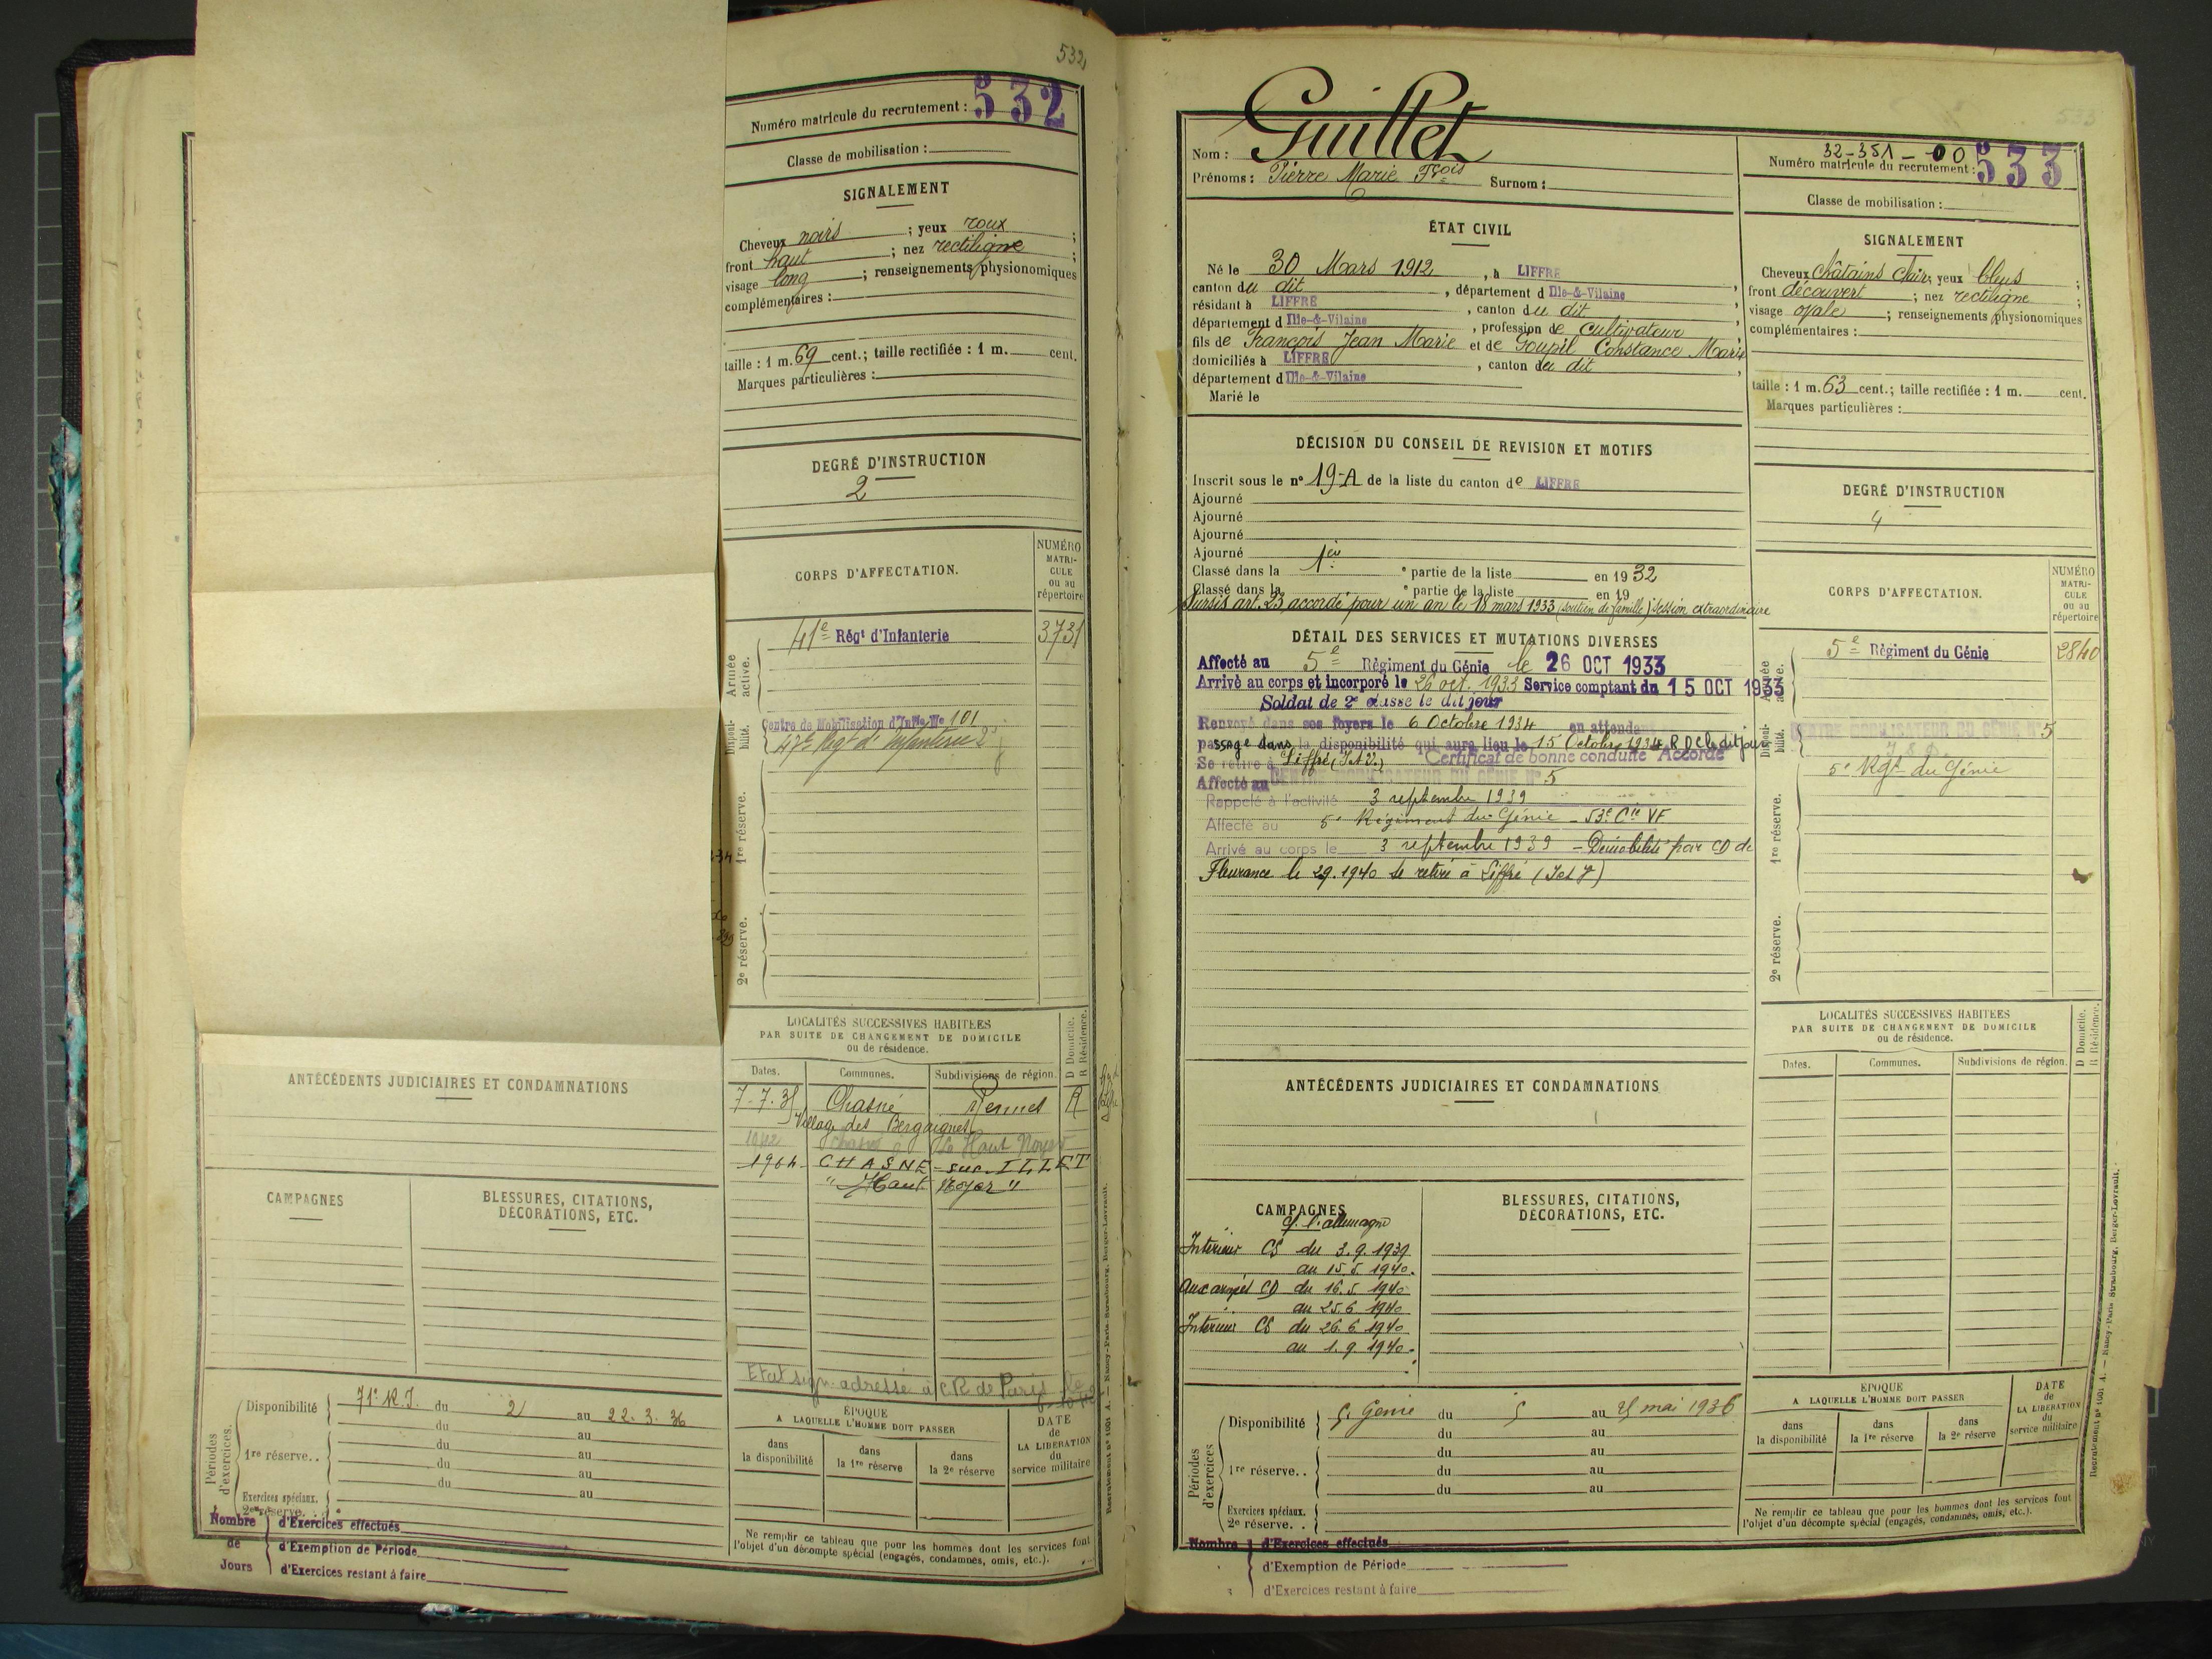 532
Numéro matricule du recrutement : 532
Classe de mobilisation :
SIGNALEMENT
Cheveux noirs ; yeux roux ;
front haut ; nez rectiligne ;
visage long ; renseignements physionomiques
complémentaires :
taille : 1 m. 69 cent.; taille rectifiée : 1 m. cent.
Marques particulières :
DEGRÉ D'INSTRUCTION
2
CORPS D'AFFECTATION.
NUMÉRO
MATRI-
CULE
ou au
répertoire
Armée
active.
41e Régt d'Infanterie 3731
Disponi-
bilité.
Centre de Mobilisation d'Infie No 101
47e Régt d'Infanterie
1re réserve.
2e réserve.
LOCALITÉS SUCCESSIVES HABITÉES
PAR SUITE DE CHANGEMENT DE DOMICILE
ou de résidence.
D Domicile.
R Résidence.
Dates. Communes. Subdivisions de région.
7-7-35 Chasné Rennes R
Village des Bergaignes
Chasné Le Haut Noyer
1964 CHASNE-sur-ILLET
"Haut Noyer"
Etat sign. adressé à CR de Paris le
ÉPOQUE
A LAQUELLE L'HOMME DOIT PASSER
DATE
de
LA LIBÉRATION
du
service militaire
dans
la disponibilité
dans
la 1re réserve
dans
la 2e réserve
Ne remplir ce tableau que pour les hommes dont les services font
l'objet d'un décompte spécial (engagés, condamnés, omis, etc.).
Recrutement no 1001 A. — Nancy-Paris-Strasbourg, Berger-Levrault.
ANTÉCÉDENTS JUDICIAIRES ET CONDAMNATIONS
CAMPAGNES
BLESSURES, CITATIONS,
DÉCORATIONS, ETC.
Périodes
d'exercices.
Disponibilité 71e R.I. du 2 au 22.3.36
du au
1re réserve.. du au
du au
du au
Exercices spéciaux.
2e réserve. .
Nombre de Jours
d'Exercices effectués
d'Exemption de Période
d'Exercices restant à faire
Nom : Guillet
Prénoms : Pierre Marie Fçois Surnom :
ÉTAT CIVIL
Né le 30 Mars 1912, à LIFFRE
canton du dit, département d Ille-&-Vilaine,
résidant à LIFFRE, canton du dit,
département d Ille-&-Vilaine, profession de cultivateur
fils de François Jean Marie et de Goupil Constance Marie
domiciliés à LIFFRE, canton du dit,
département d Ille-&-Vilaine
Marié le
DÉCISION DU CONSEIL DE REVISION ET MOTIFS
Inscrit sous le no 19-A de la liste du canton de LIFFRE
Ajourné
Ajourné
Ajourné
Ajourné
Classé dans la 1ère partie de la liste en 1932
Classé dans la partie de la liste en 19
Sursis art. 23 accordé pour un an le 18 mars 1933 (soutien de famille) session extraordinaire
DÉTAIL DES SERVICES ET MUTATIONS DIVERSES
Affecté au 5e Régiment du Génie le 26 OCT 1933
Arrivé au corps et incorporé le 26 oct. 1933 Service comptant du 15 OCT 1933
Soldat de 2e classe le dit jour
Renvoyé dans ses foyers le 6 Octobre 1934 en attendant
passage dans la disponibilité qui aura lieu le 15 Octobre 1934 R D C le dit jour
Se retire à Liffré (I et V.) Certificat de bonne conduite Accordé
Affecté au CENTRE MOBILISATEUR DU GÉNIE No 5
Rappelé à l'activité 3 septembre 1939
Affecté au 5e Régiment du Génie - 53e Cie VF
Arrivé au corps le 3 septembre 1939 - Démobilisé par CD de
Fleurance le 29.1940 se retire à Liffré (I et V)
ANTÉCÉDENTS JUDICIAIRES ET CONDAMNATIONS
CAMPAGNES
C/ l'allemagne
Intérieur CS du 3.9.1939
au 15.5.1940.
Aux armées CD du 16.5.1940
au 25.6.1940
Intérieur CS du 26.6.1940
au 1.9.1940.
BLESSURES, CITATIONS,
DÉCORATIONS, ETC.
Périodes
d'exercices
Disponibilité 5. Génie du 5 au 25 mai 1936
du au
du au
1re réserve.. du au
du au
Exercices spéciaux.
2e réserve. .
Nombre
d'Exercices effectués
d'Exemption de Période
d'Exercices restant à faire
32-351-00
Numéro matricule du recrutement : 533
Classe de mobilisation :
SIGNALEMENT
Cheveux châtains clairs yeux bleus ;
front découvert ; nez rectiligne ;
visage ovale ; renseignements physionomiques
complémentaires :
taille : 1 m. 63 cent.; taille rectifiée : 1 m. cent.
Marques particulières :
DEGRÉ D'INSTRUCTION
4
CORPS D'AFFECTATION.
NUMÉRO
MATRI-
CULE
ou au
répertoire
Armée
active.
5e Régiment du Génie 2840
Disponi-
bilité.
CENTRE MOBILISATEUR DU GÉNIE No 5
5e Rgt du Génie
1re réserve.
2e réserve.
LOCALITÉS SUCCESSIVES HABITÉES
PAR SUITE DE CHANGEMENT DE DOMICILE
ou de résidence.
D Domicile.
R Résidence.
Dates. Communes. Subdivisions de région.
ÉPOQUE
A LAQUELLE L'HOMME DOIT PASSER
DATE
de
LA LIBÉRATION
du
service militaire
dans
la disponibilité
dans
la 1re réserve
dans
la 2e réserve
Ne remplir ce tableau que pour les hommes dont les services font
l'objet d'un décompte spécial (engagés, condamnés, omis, etc.).
Recrutement no 1001 A. — Nancy-Paris-Strasbourg, Berger-Levrault.